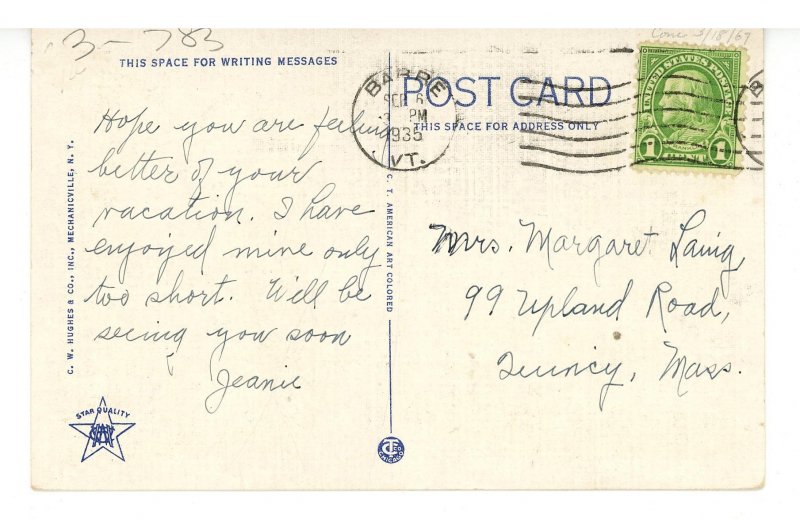 3-783
Conc 3/18/67
THIS SPACE FOR WRITING MESSAGES
POST CARD
THIS SPACE FOR ADDRESS ONLY
BARRE
SEP 6
PM
1935
VT.
UNITED STATES POSTAGE
1 CENT 1
Hope you are feeling
better of your
vacation. I have
enjoyed mine only
too short. Will be
seeing you soon
Jeanie
Mrs. Margaret Laing
99 Upland Road,
Quincy, Mass.
C. W. HUGHES & CO., INC., MECHANICVILLE, N. Y.
C. T. AMERICAN ART COLORED
STAR QUALITY
CHICAGO